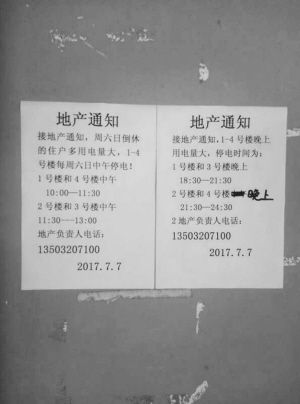 地产通知
接地产通知，周六日倒休
的住户多用电量大，1-4
号楼每周六日中午停电！
1号楼和4号楼中午
10:00—11:30
2号楼和3号楼中午
11:30---13:00
地产负责人电话：
13503207100
2017.7.7
地产通知
接地产通知,1-4号楼晚上
用电量大，停电时间为：
1号楼和3号楼晚上
18:30—21:30
2号楼和4号楼晚上
21:30—24:30
2地产负责人电话：
13503207100
2017.7.7